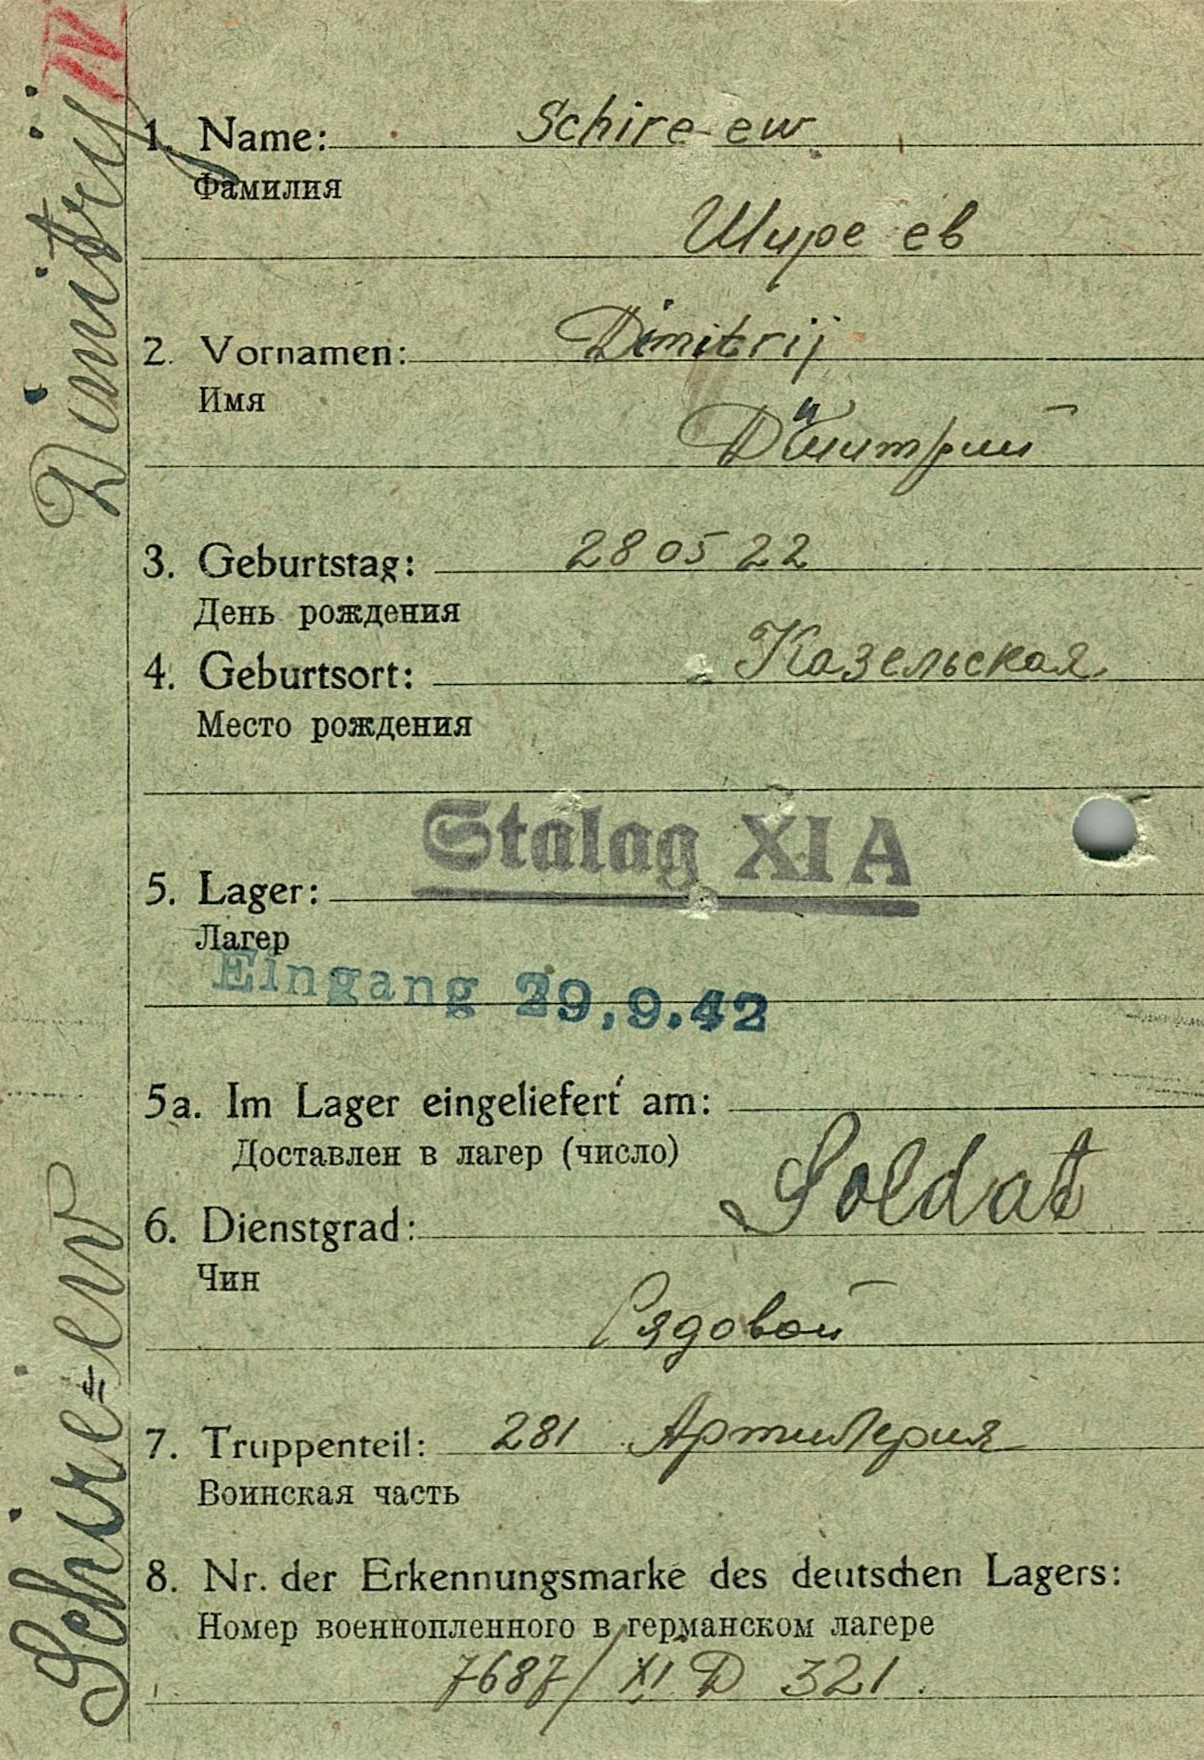 IV
1. Name: Schire-ew
Фамилия
Шире ев
2. Vornamen: Dimitrij
Имя
Димитрий
3. Geburtstag: 28 05 22
День рождения
4. Geburtsort: Казельская
Место рождения
Stalag XI A
5. Lager:
Лагер
Eingang 29.9.42
5a. Im Lager eingeliefert am:
Доставлен в лагер (число)
6. Dienstgrad: Soldat
Чин
Рядовой
7. Truppenteil: 281 Артилерия
Воинская часть
8. Nr. der Erkennungsmarke des deutschen Lagers:
Номер военнопленного в германском лагере
7687/ XI D 321.
Schire=ew Dimitrij